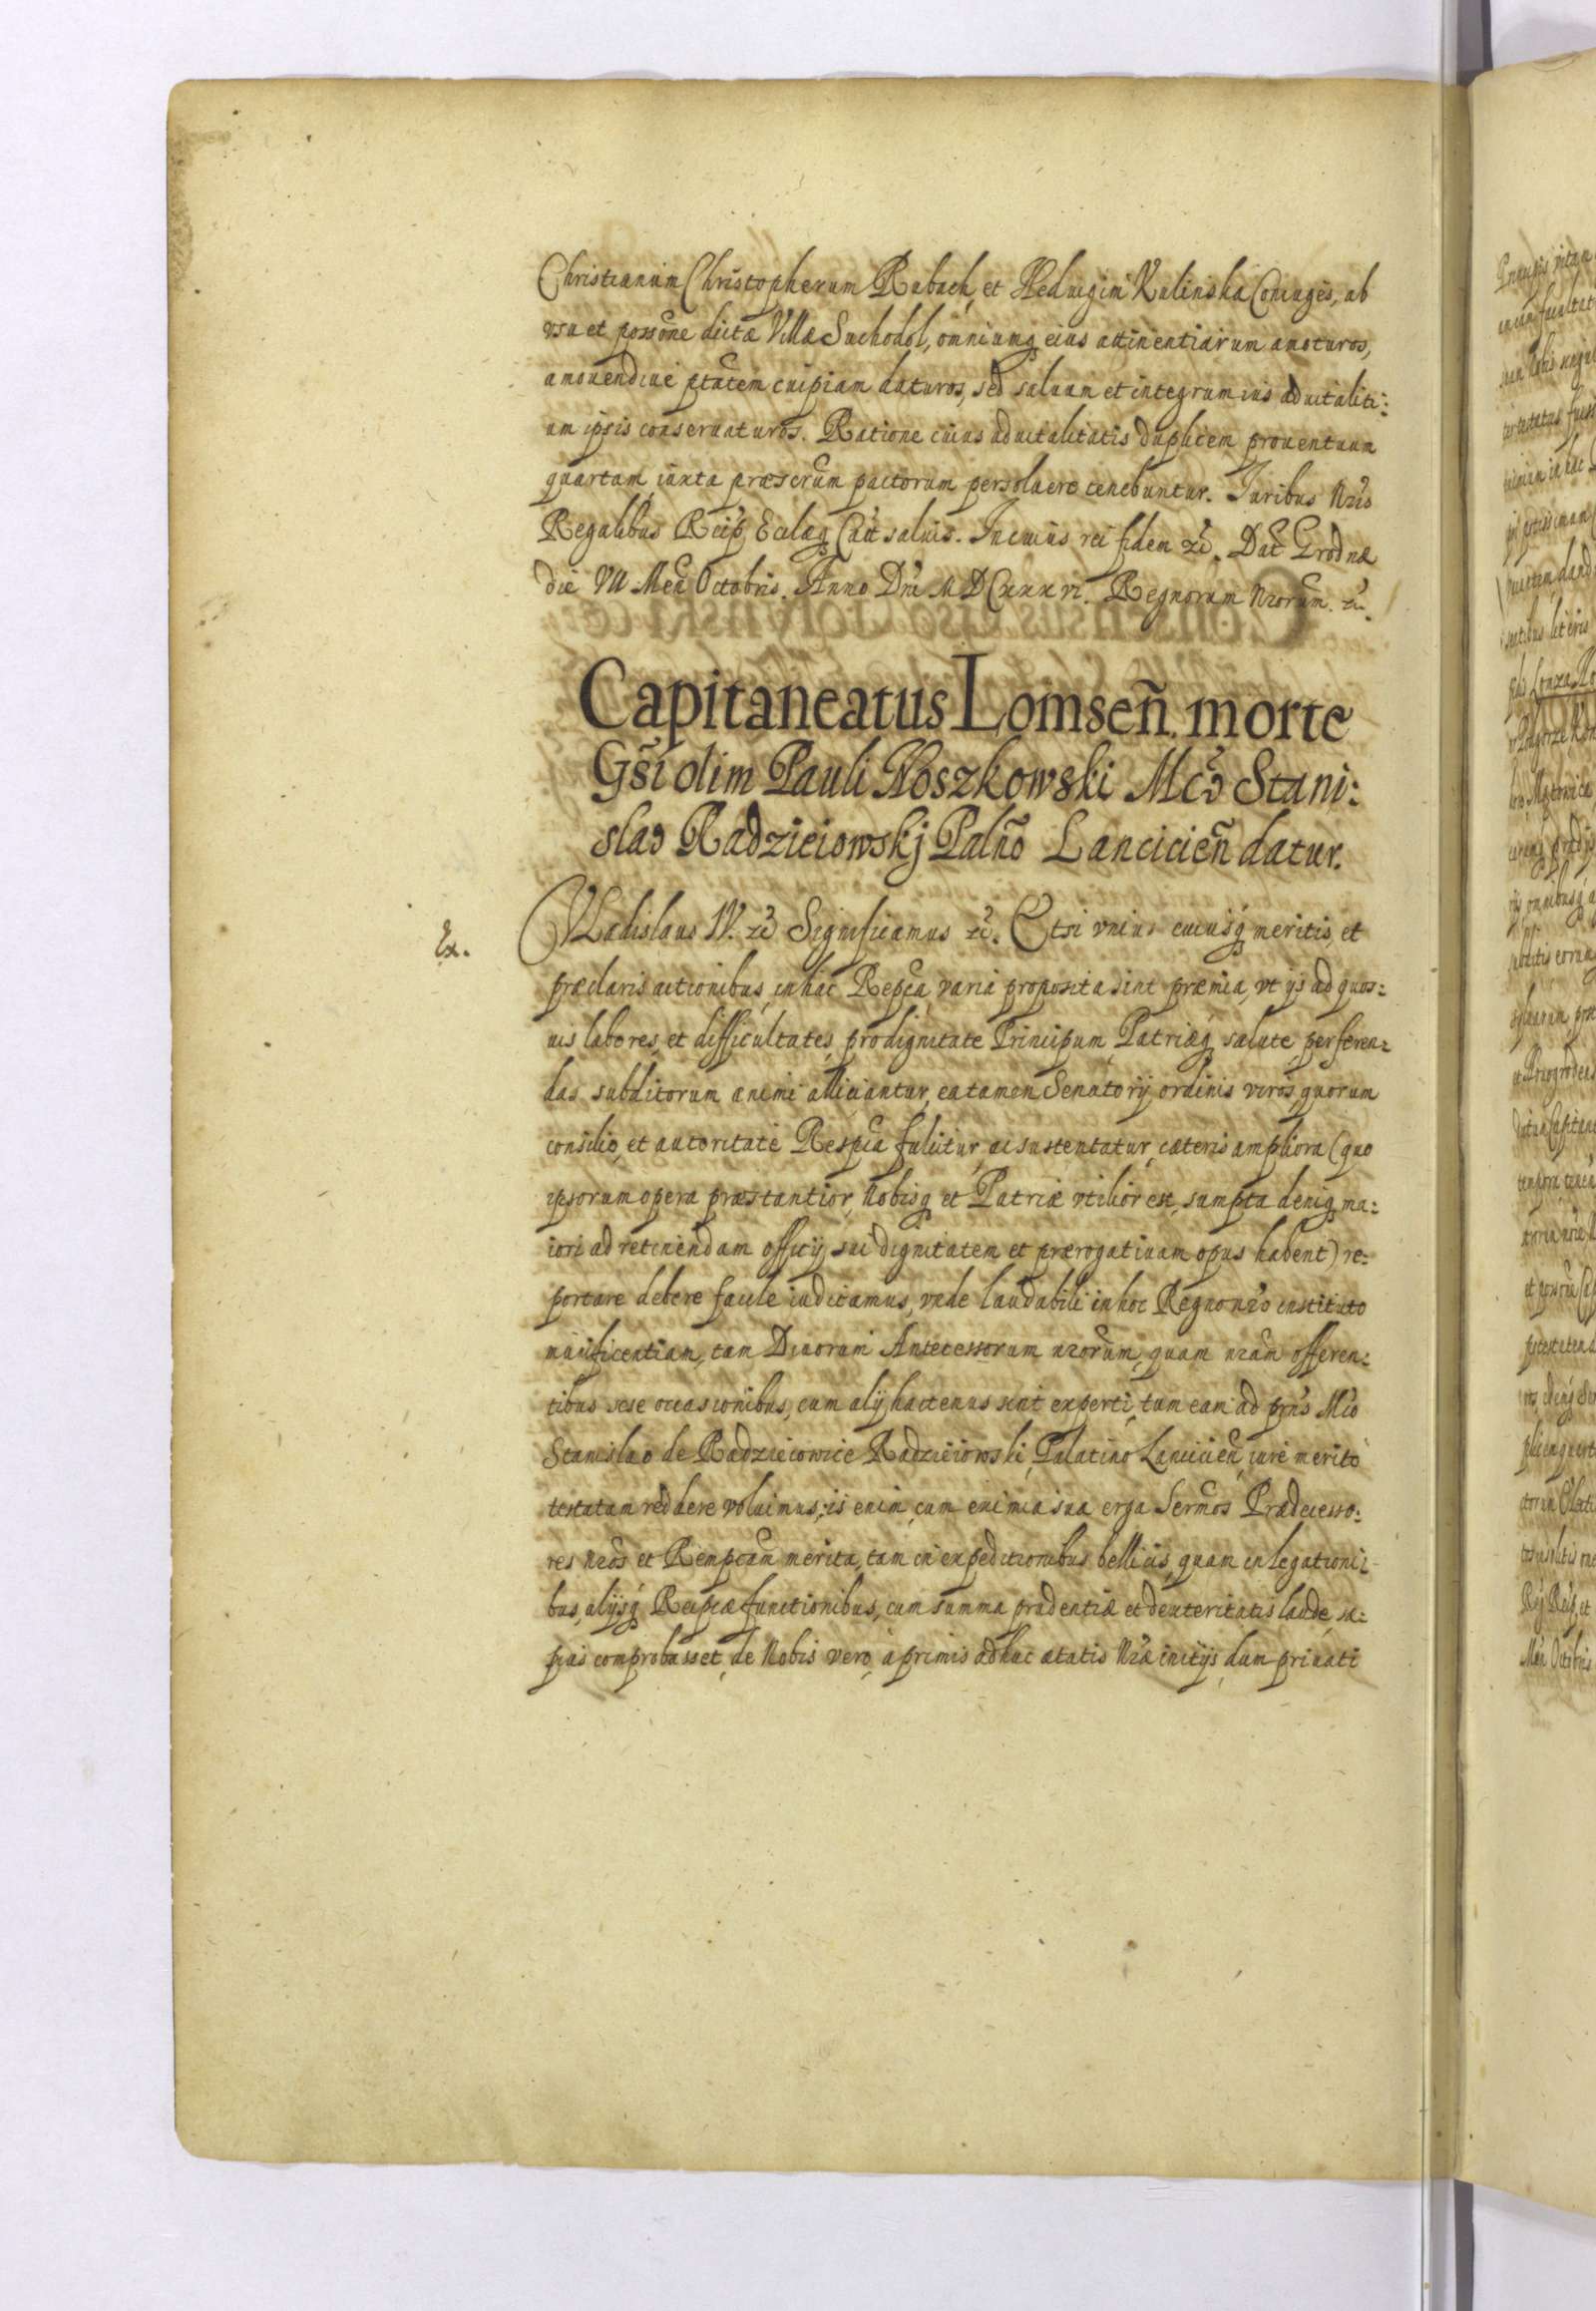 Christianum Christopherum Rubach, et Heduigim Kulinska Coniuges, ab
vsu et possone dictæ Villæ Suchodol, omniumq eius attinentiarum amoturos,
amouendiue ptatem cuipiam daturos, sed saluam et integrum ius aduitaliti:
um ipsis conseruaturos. Ratione cuius aduitalitatis duplicem prouentuum
quartam iuxta præscrum pactorum persoluere tenebuntur. Iuribus Nris
Regalibus Reip Ecclæq Catt saluis. In cuius rei fidem &c. Dat Grodnæ
die VII Men Octobris. Anno Dni MDCxxxvi. Regnorum Nrorum. &c.
Capitaneatus Lomsen̄. morte
Gsi olim Pauli Noszkowski Mco Stani:
slao Radzieiowskj Palno Lancicien̄ datur.
Ex.
Vladislaus IV. &c Significamus &c. Etsi vnius cuiusq meritis, et
præclaris actionibus, in hac Repca varia proposita sint præmia, vt ijs ad quos:
uis labores, et difficultates, pro dignitate Principum, Patriæq salute, perferen:
das subditorum animi alliciantur, ea tamen Senatorij ordinis viros, quorum
consilio, et autoritate Respca fulcitur, ac sustentatur, cæteris ampliora (quo
ipsorum opera præstantior, Nobisq et Patriæ vtilior est, sumpta deniq ma:
iori ad retinendam officij sui dignitatem et prærogatiuam opus habent) re:
portare debere facile iudicamus, vnde laudabili in hoc Regno nro instituto
munificentiam, tam Diuorum Antecessorum nrorum, quam nram offeren:
tibus sese occasionibus, cum alij hactenus sint experti, tum eam ad præns Mco
Stanislao de Radzieiowice Radzieiowski, Palatino Lancicien, iure merito
testatam reddere voluimus; is enim, cum eximia sua erga Sermos Prædecesso:
res Nros et Rempcam merita, tam in expeditionibus bellicis, quam in legationi:
bus, alijsq Reipcæ functionibus, cum summa prudentiæ et dexteritatis laude, sæ:
pius comprobasset, de Nobis vero, à primis adhuc ætatis Nræ initijs, dum priuati